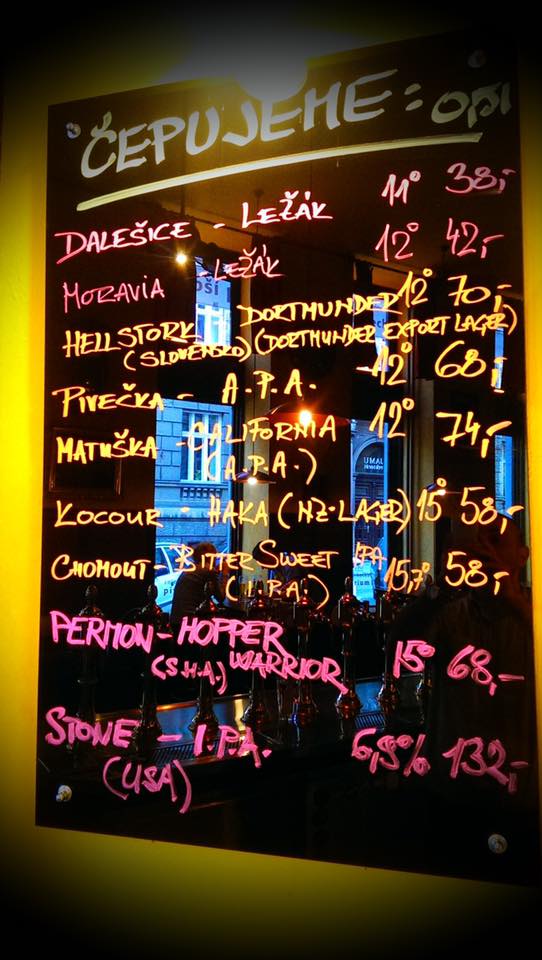 ČEPUJEME:
DALEŠICE - LEŽÁK 11° 38,-
MORAVIA - LEŽÁK 12° 42,-
HELLSTORK - DORTMUNDER 12° 70,-
(SLOVENSKO) (DORTMUNDER EXPORT LAGER)
PIVEČKA - A.P.A. -12° 68,-
MATUŠKA - CALIFORNIA 12° 74,-
(A.P.A.)
KOCOUR - HAKA (NZ-LAGER) 15° 58,-
CHOMOUT - BITTER SWEET IPA 15,7° 58,-
(I.P.A.)
PERMON - HOPPER 15° 68,-
(S.H.A.) WARRIOR
STONE - I.P.A. 6,9% 132,-
(USA)